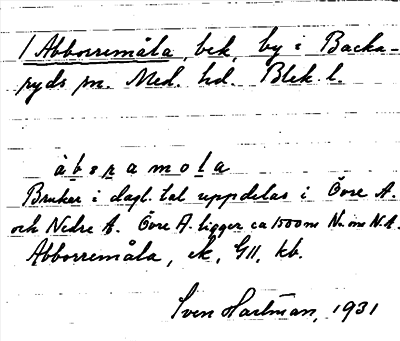 /Abborremåla, bek, by i Backa-
ryds sn. Med. hd. Blek. l.
àbsramola
Brukar i dagl. tal uppdelas i Övre A.
och Nedre A. Övre A. ligger ca 1500 m N. om N. A.
Abborremåla, ek, GII, kb.
Sven Hartman, 1931